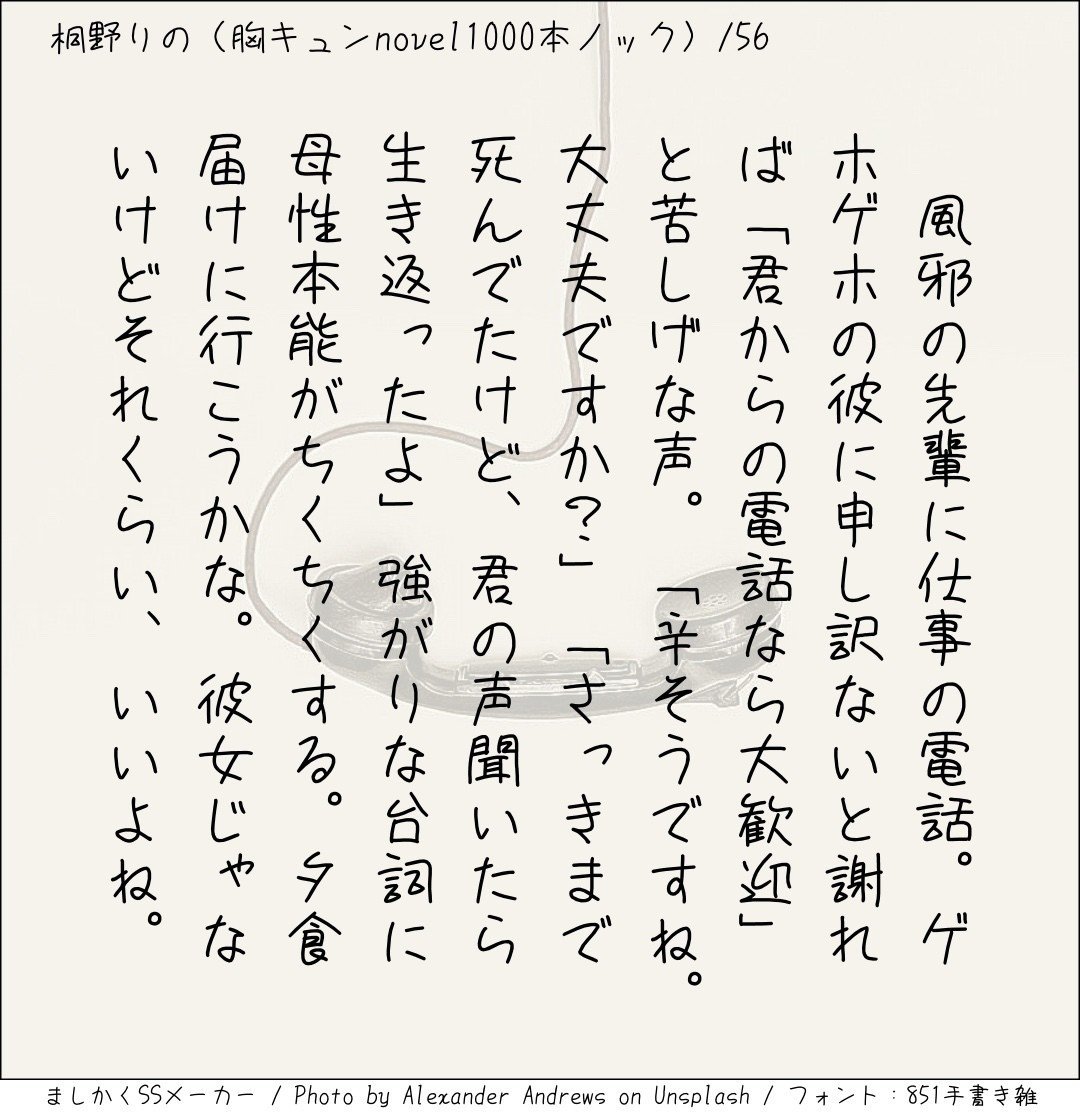 桐野りの（胸キュンnovel1000本ノック）/56
　風邪の先輩に仕事の電話。ゲ
ホゲホの彼に申し訳ないと謝れ
ば「君からの電話なら大歓迎」
と苦しげな声。「辛そうですね。
大丈夫ですか？」「さっきまで
死んでたけど、君の声聞いたら
生き返ったよ」強がりな台詞に
母性本能がちくちくする。夕食
届けに行こうかな。彼女じゃな
いけどそれくらい、いいよね。
ましかくSSメーカー / Photo by Alexander Andrews on Unsplash / フォント：851手書き雑